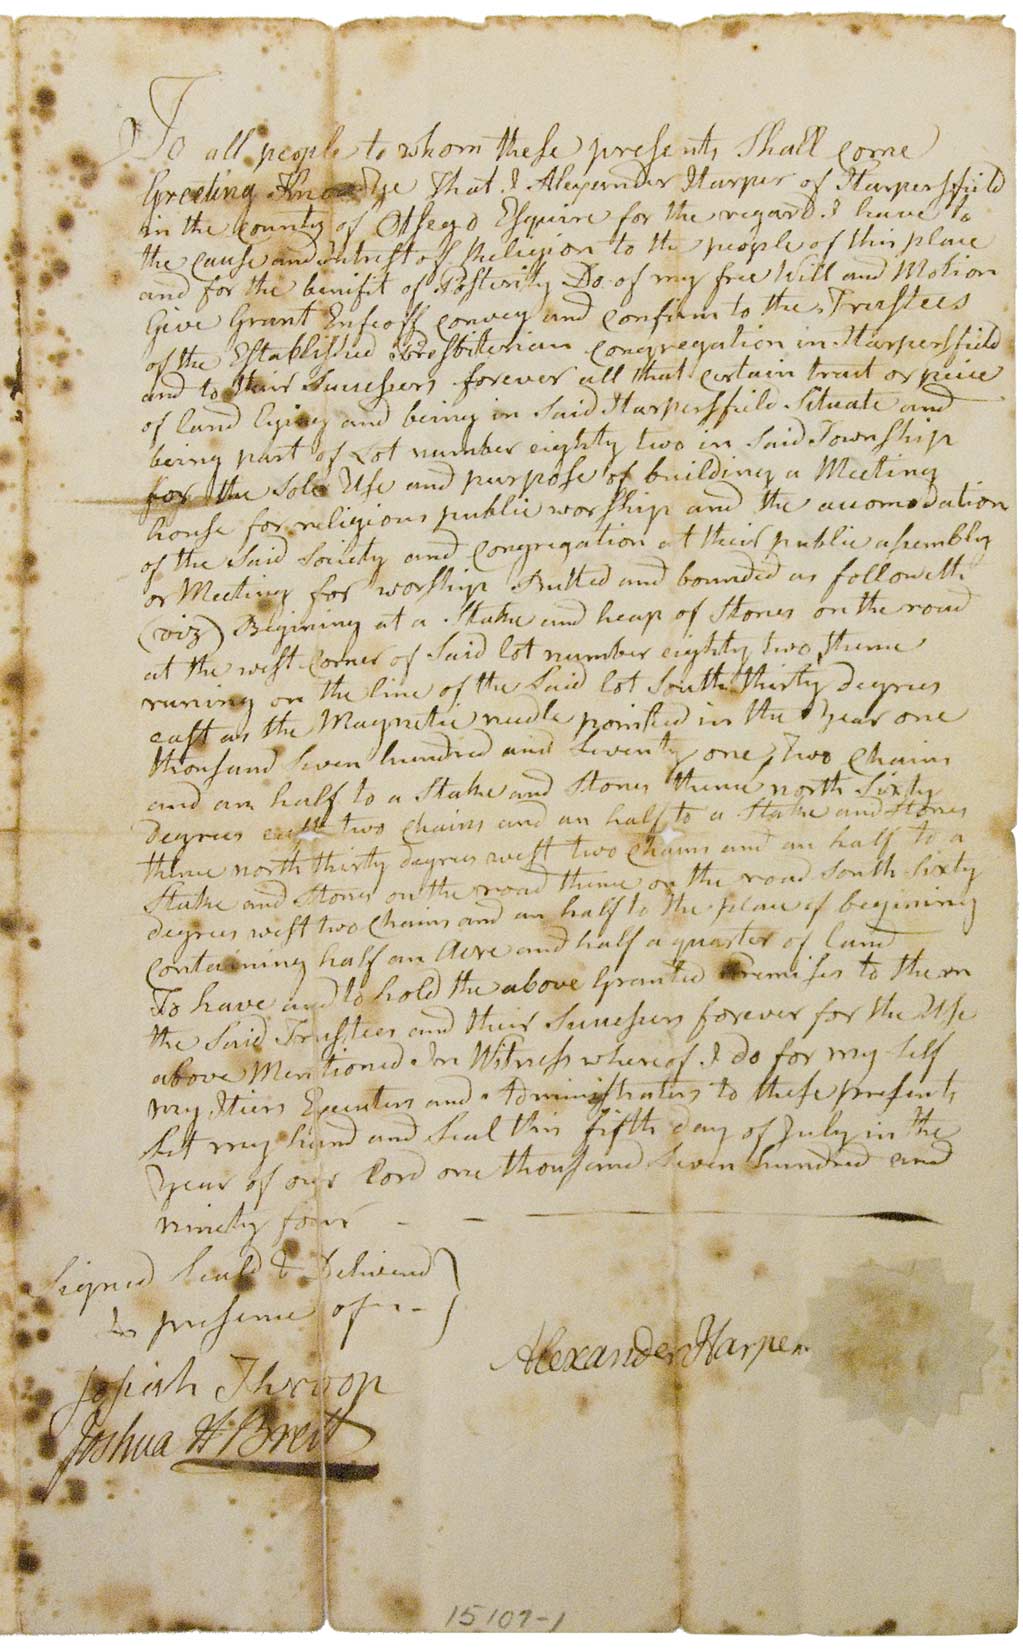 To all people to whom these presents Shall come
Greeting Know Ye that I Alexander Harper of Harpersfield
in the county of Otsego Esquire for the regard I have to
the cause and Intrest of Religion to the people of this place
and for the benifit of Posterity Do of my free Will and Motion
Give Grant Enfeoff convey and confirm to the Trustees
of the Established Presbiterian congregation in Harpersfield
and to their Sucessors forever all that certain tract or peice
of land lying and being in Said Harpersfield Situate and
being part of Lot number eighty two in Said Township
for the Sole Use and purpose of building a Meeting
house for religious public worship and the accomodation
of the Said Society and Congregation at their public assembly
or Meeting for worship Butted and bounded as followeth
(viz) Begining at a Stake and heap of Stones on the road
at the west corner of Said lot number eighty two, thence
runing on the line of the Said lot South thirty degrees
east as the Magnetic needle pointed in the Year one
thousand Seven hundred and Seventy one, two Chains
and an half to a Stake and Stones thence north Sixty
degrees east two Chains and an half to a Stake and Stones
thence north thirty degrees west two Chains and an half to a
Stake and Stones on the road thence on the road South Sixty
degrees west two Chains and an half to the place of begining
Containing half an Acre and half a quarter of land
To have and to hold the above Granted Premises to them
the Said Trustees and their Sucessors forever for the Use
above Mentioned In Witness whereof I do for my Self
my Heirs Executors and Administrators to these presents
Set my hand and Seal this fifth day of July in the
Year of our lord one thousand Seven hundred and
ninety four
Signed Seald & Delivered }
In presence of
Alexander Harper
Josiah Throop
Joshua H Brett
15107-1